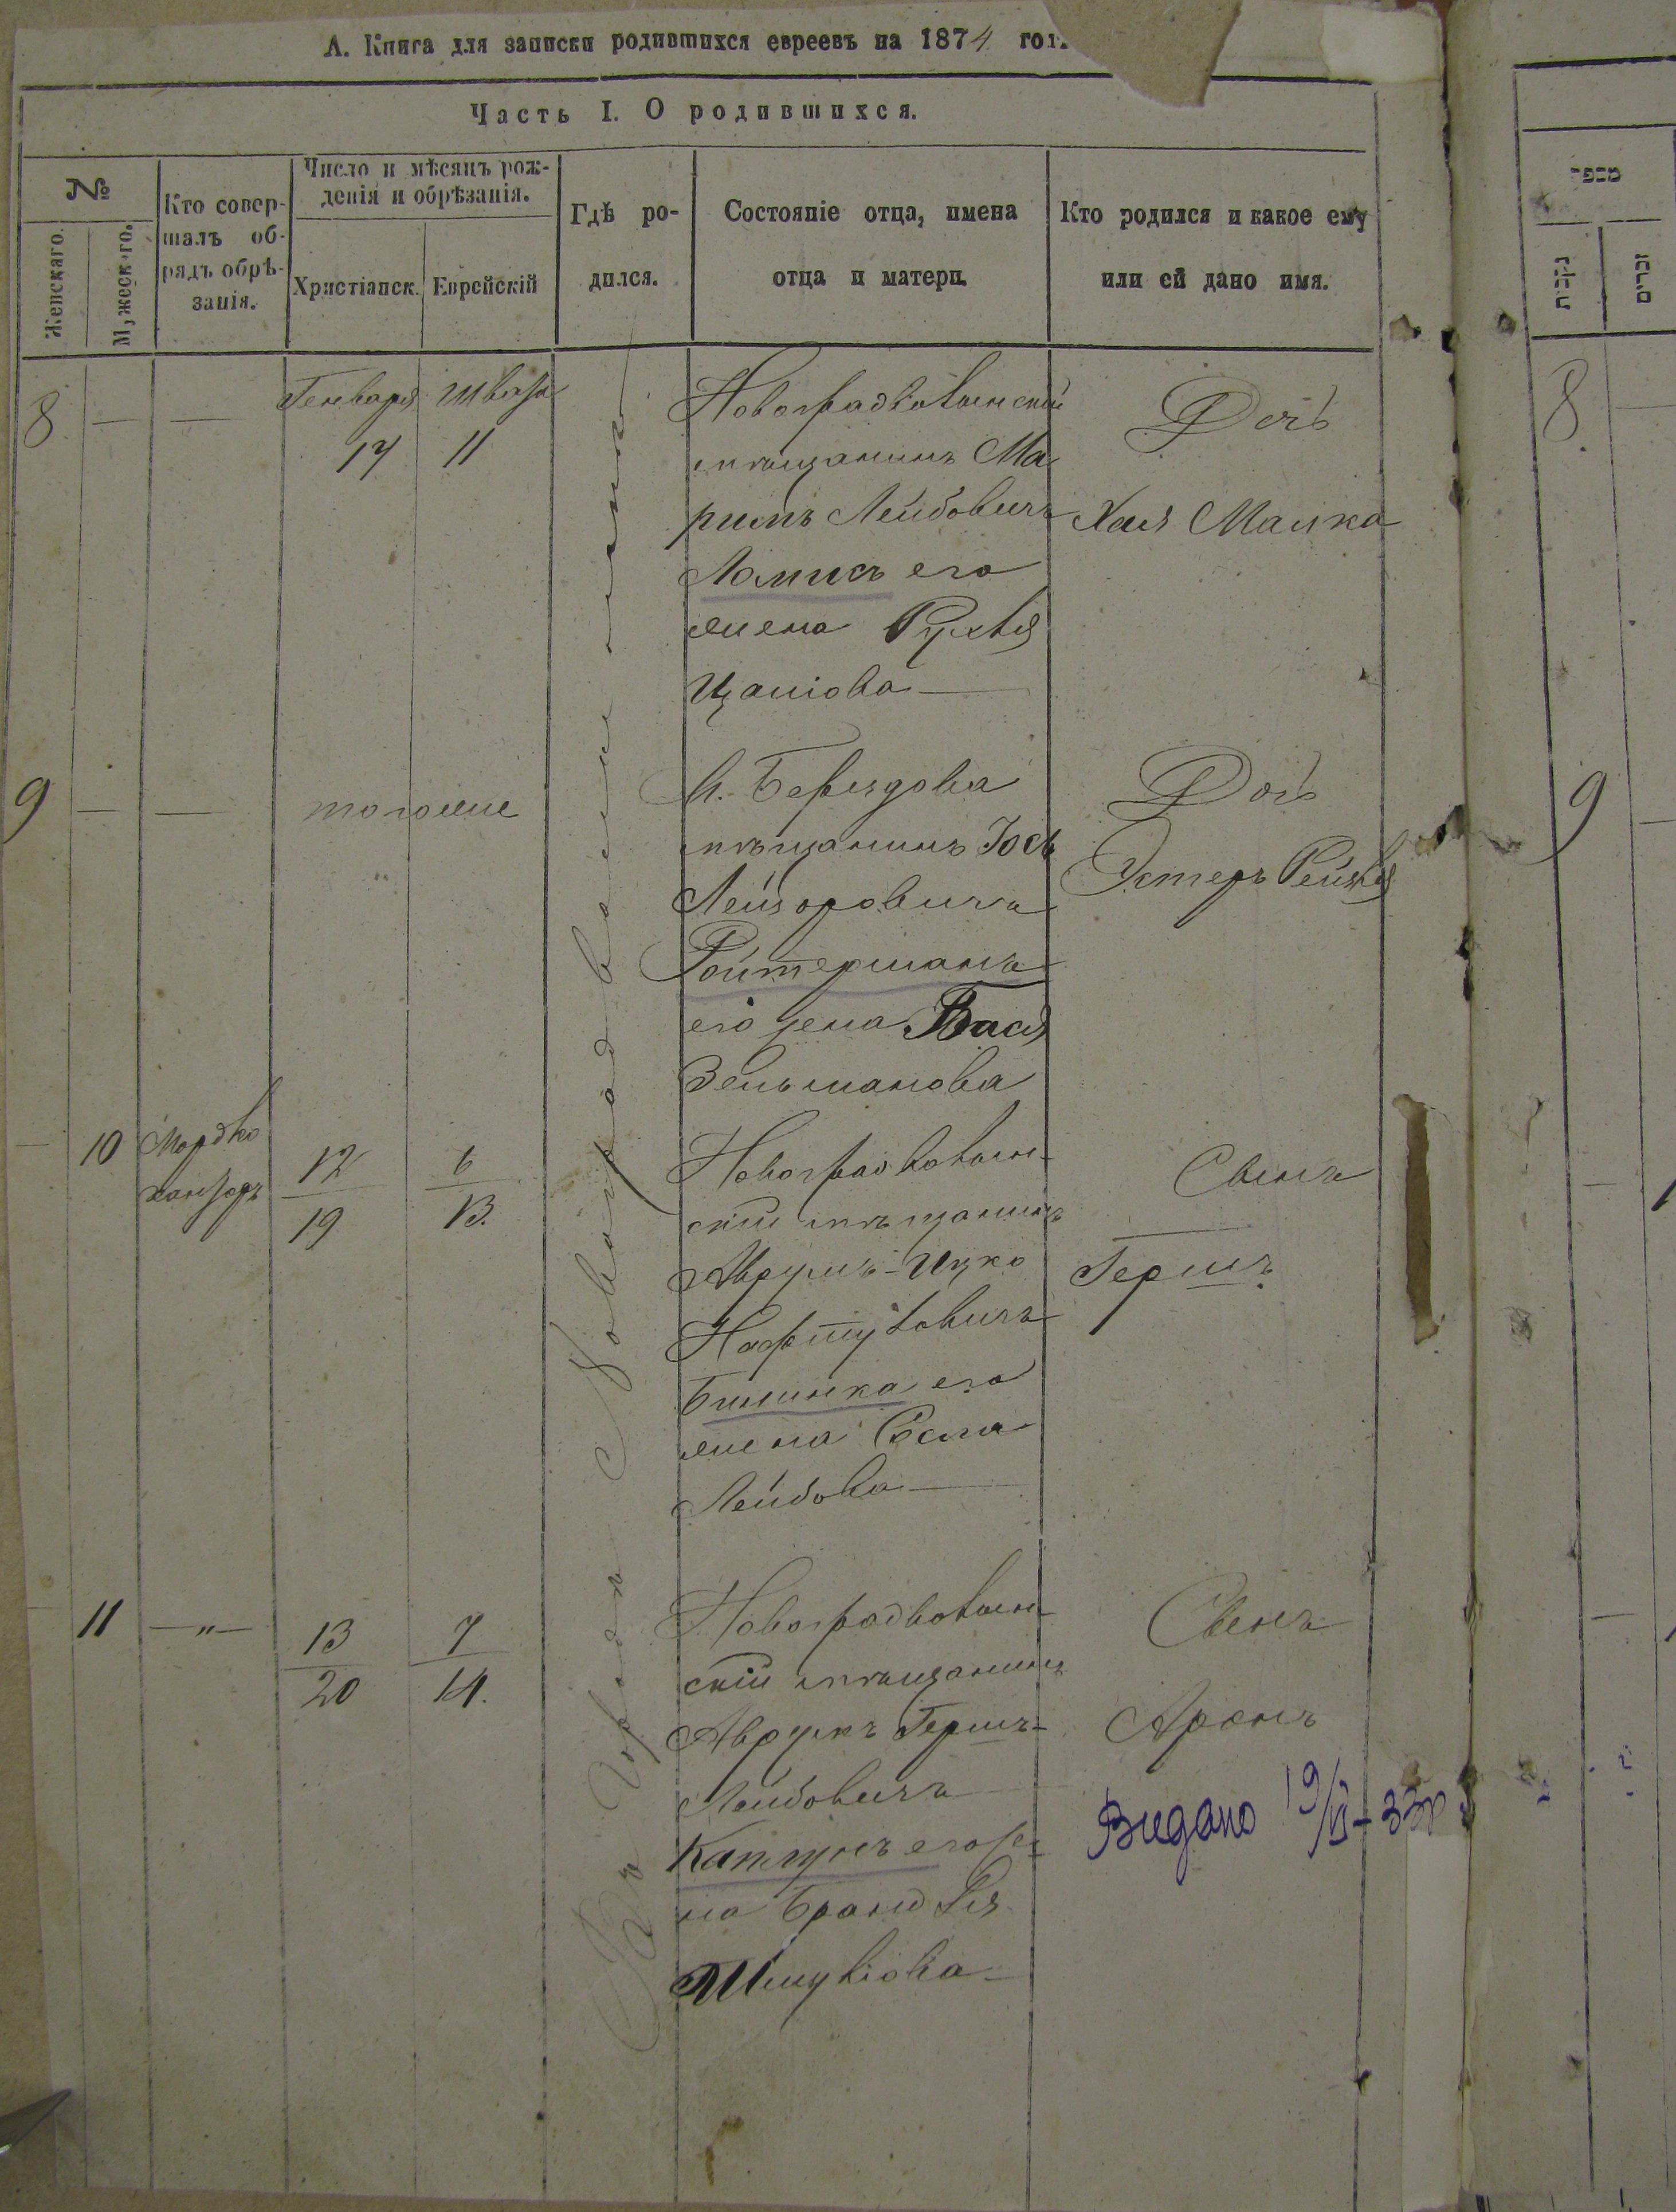 А. Книга для записки родившихся евреевъ на 1874
Часть I. О родившихся.
№
Женскаго.
Мужеск-го.
Кто совер-
шалъ об-
рядъ обрѣ-
занія.
Число и мѣсяцъ рож-
денія и обрѣзанія.
Христіанск.
Еврейскій
Гдѣ ро-
дился.
Состояніе отца, имена
отца и матери.
Кто родился и какое ему
или ей дано имя.
מספר
נקבות
זכרים
Въ Городѣ Новоградволынскѣ
8
— —
Генваря
17
11
Новоградволынскій
мѣщанинъ Ма
Лейбовичъ
его
жена Рухля
Дочь
Хая Малка
8
9
— —
тогоже
М. Берездова
мѣщанинъ Іось
Лейзоровичъ
Ройтерманъ
его жена Бася
Зельманова
Дочь
Эстеръ Рейзля
9
10
Мордко
12
19
6
13.
Новоградволын-
скій мѣщанинъ
Аврумъ-Ицко
Нафтуловичъ
его
жена
Лейбова
Сынъ
Гершъ.
11
—"—
13
20
7
14.
Новоградволын-
скій мѣщанинъ
Аврумъ Гершъ-
Лейбовичъ
Каплунъ его же-
на Брандля
Шмуліова
Сынъ
Аронъ
Видано 19/VI-33р